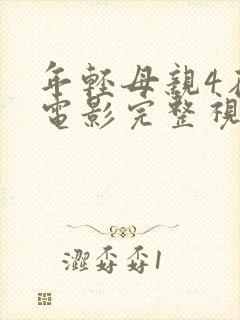 年輕母親4
電影完整視
澀孬孬1